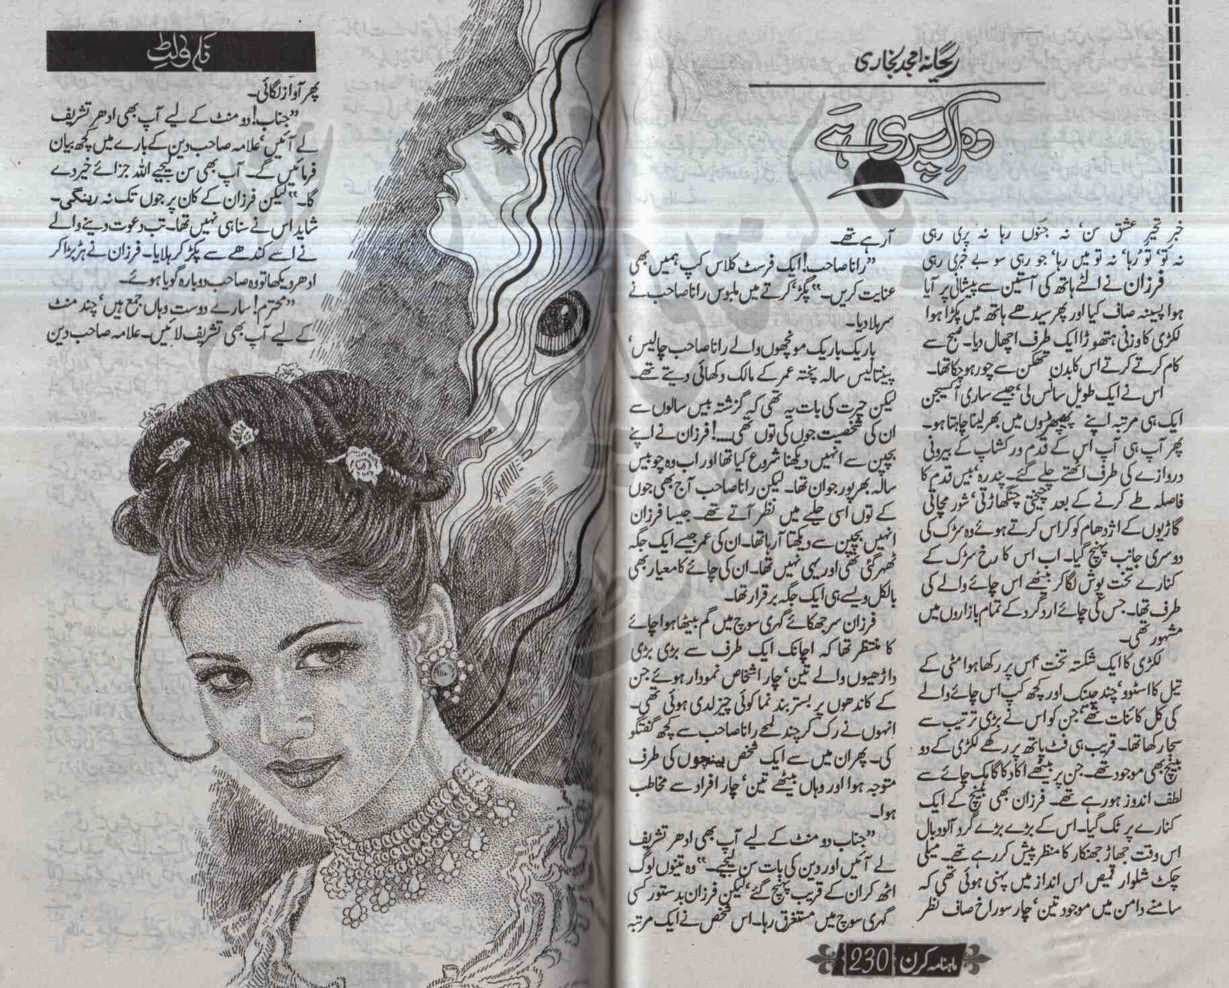 ریحانہ امجد بخاری
وہ اک پری ہے
خبر تحیر عشق سن، نہ جنوں رہا نہ پری رہی
نہ تو، تو رہا، نہ تو میں رہا، جو رہی سو بے خبری رہی
فرزان نے الٹے ہاتھ کی آستین سے پیشانی پر آیا
ہوا پسینہ صاف کیا اور پھر سیدھے ہاتھ میں پکڑا ہوا
لکڑی کا وزنی ہتھوڑا ایک طرف اچھال دیا۔ صبح سے
کام کرتے کرتے اس کا بدن تھکن سے چور ہو چکا تھا۔
اس نے ایک طویل سانس لی، جیسے ساری آکسیجن
ایک ہی مرتبہ اپنے پھیپھڑوں میں بھر لینا چاہتا ہو۔
پھر آپ ہی آپ اس کے قدم ورکشاپ کے بیرونی
دروازے کی طرف اٹھتے چلے گئے۔ پندرہ، بیس قدم کا
فاصلہ طے کرنے کے بعد چیختی چنگھاڑتی، شور مچاتی
گاڑیوں کے اژدھام کو کراس کرتے ہوئے وہ سڑک کی
دوسری جانب پہنچ گیا۔ اب اس کا رخ سڑک کے
کنارے تخت پوش لگا کر بیٹھے اس چائے والے کی
طرف تھا۔ جس کی چائے اردگرد کے تمام بازاروں میں
مشہور تھی۔
لکڑی کا ایک شکستہ تخت، اس پر رکھا ہوا مٹی کے
تیل کا اسٹوو، چند چینک اور کچھ کپ اس چائے والے
کی کل کائنات تھے، جن کو اس نے بڑی ترتیب سے
سجا رکھا تھا۔ قریب ہی فٹ پاتھ پر رکھے لکڑی کے دو
بینچ بھی موجود تھے۔ جن پر بیٹھے اکا دکا گاہک چائے سے
لطف اندوز ہو رہے تھے۔ فرزان بھی بینچ کے ایک
کنارے پر ٹک گیا۔ اس کے بڑے بڑے گرد آلود بال
اس وقت جھاڑ جھنکار کا منظر پیش کر رہے تھے۔ میلی
چکٹ شلوار قمیص اس انداز میں پہنی ہوئی تھی کہ
سامنے دامن میں موجود تین، چار سوراخ صاف نظر
آرہے تھے۔
”رانا صاحب! ایک فرسٹ کلاس کپ ہمیں بھی
عنایت کریں۔“ پگڑ، کرتے میں ملبوس رانا صاحب نے
سر ہلا دیا۔
باریک باریک مونچھوں والے رانا صاحب چالیس،
پینتالیس سالہ پختہ عمر کے مالک دکھائی دیتے تھے۔
لیکن حیرت کی بات یہ تھی کہ گزشتہ بیس سالوں سے
ان کی شخصیت جوں کی توں تھی۔۔۔! فرزان نے اپنے
بچپن سے انہیں دیکھنا شروع کیا تھا اور اب وہ چوبیس
سالہ بھرپور جوان تھا۔ لیکن رانا صاحب آج بھی جوں
کے توں اسی حلیے میں نظر آتے تھے۔ جیسا فرزان
انہیں بچپن سے دیکھتا آ رہا تھا۔ ان کی عمر جیسے ایک جگہ
ٹھہر گئی تھی اور یہی نہیں تھا۔ ان کی چائے کا معیار بھی
بالکل ویسے ہی ایک جگہ برقرار تھا۔
فرزان سر جھکائے گہری سوچ میں گم بیٹھا ہوا چائے
کا منتظر تھا کہ اچانک ایک طرف سے بڑی بڑی
داڑھیوں والے تین، چار اشخاص نمودار ہوئے جن
کے کاندھوں پر بستر بند نما کوئی چیز لدی ہوئی تھی۔
انہوں نے رک کر چند لمحے رانا صاحب سے کچھ گفتگو
کی۔ پھر ان میں سے ایک شخص بینچوں کی طرف
متوجہ ہوا اور وہاں بیٹھے تین، چار افراد سے مخاطب
ہوا۔
”جناب دو منٹ کے لیے آپ بھی ادھر تشریف
لے آئیں اور دین کی بات سن لیجیے۔“ وہ تینوں لوگ
اٹھ کر ان کے قریب پہنچ گئے، لیکن فرزان بدستور کسی
گہری سوچ میں مستغرق رہا۔ اس شخص نے ایک مرتبہ
ماہنامہ کرن 230
پھر آواز لگائی۔
”جناب! دو منٹ کے لیے آپ بھی ادھر تشریف
لے آئیں، علامہ صاحب دین کے بارے میں کچھ بیان
فرمائیں گے۔ آپ بھی سن لیجیے اللہ جزائے خیر دے
گا۔“ لیکن فرزان کے کان پر جوں تک نہ رینگی۔
شاید اس نے سنا ہی نہیں تھا۔ تب دعوت دینے والے
نے اسے کندھے سے پکڑ کر ہلایا۔ فرزان نے ہڑبڑا کر
ادھر دیکھا تو وہ صاحب دوبارہ گویا ہوئے۔
”محترم! سارے دوست وہاں جمع ہیں، چند منٹ
کے لیے آپ بھی تشریف لائیں۔ علامہ صاحب دین